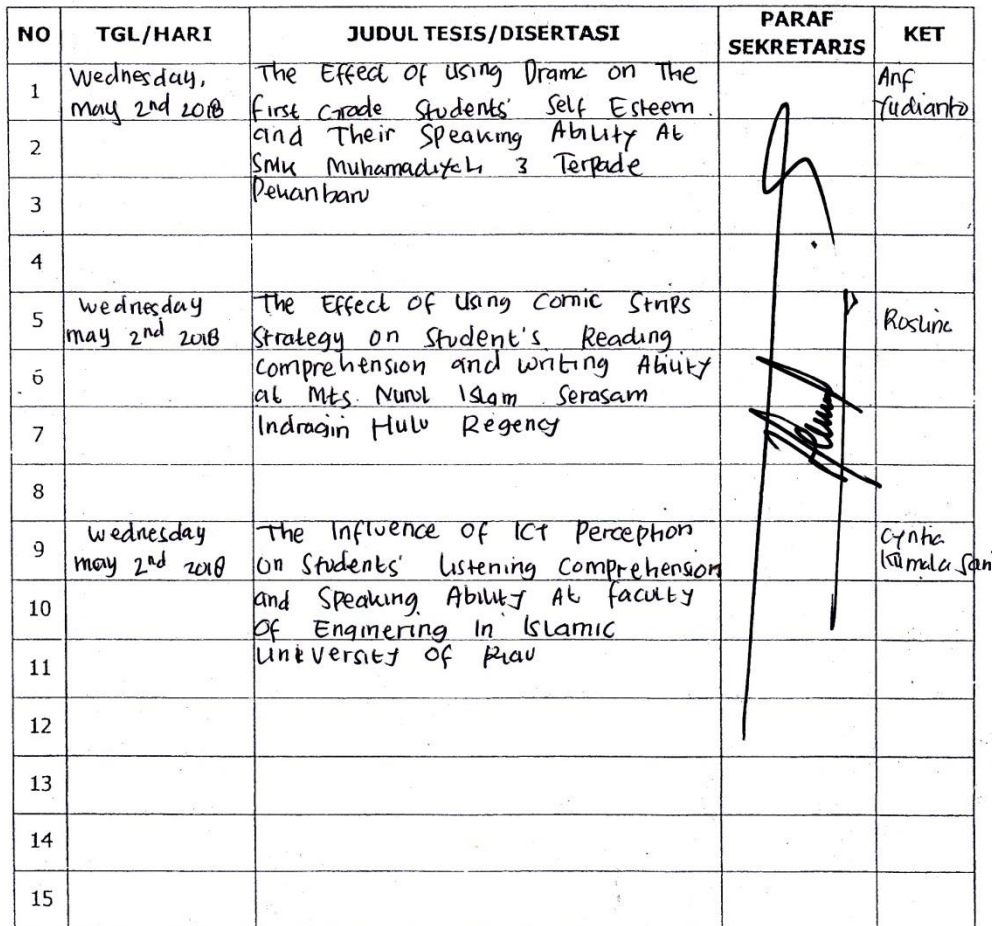 NO TGL/HARI JUDUL TESIS/DISERTASI PARAF SEKRETARIS KET
1 Wednesday, The Effect of Using Drama on The Arif
may 2nd 2018 first Grade Students' Self Esteem Yudianto
2 and Their Speaking Ability At
SMK Muhamadiyah 3 Terpade
3 Pekanbaru
4
5 Wednesday The Effect of Using Comic Strips Roslina
may 2nd 2018 Strategy on Student's Reading
6 Comprehension and Writing Ability
at Mts. Nurul Islam Serasam
7 Indragiri Hulu Regency
8
9 Wednesday The Influence of ICT Perception Cyntia
may 2nd 2018 on Students' Listening Comprehension Kumala Sari
10 and Speaking Ability At faculty
Of Enginering In Islamic
11 University Of Riau
12
13
14
15